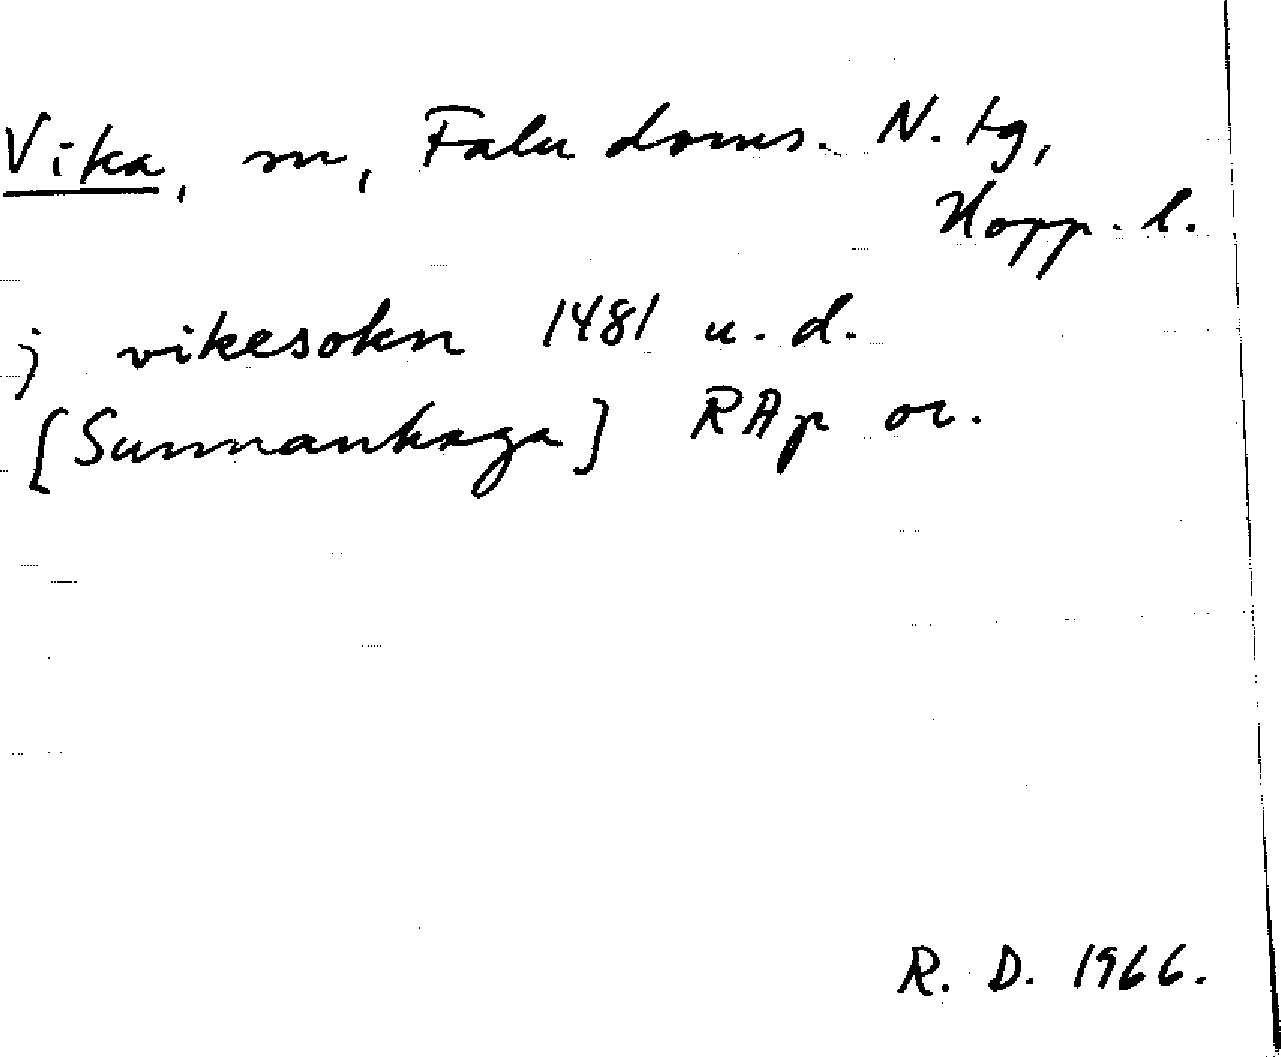 Vika, sn, Falu doms. N. tg,
Kopp. l.
j vikesokn 1481 u. d.
[Sunnanhaga] RAp or.
R. D. 1966.